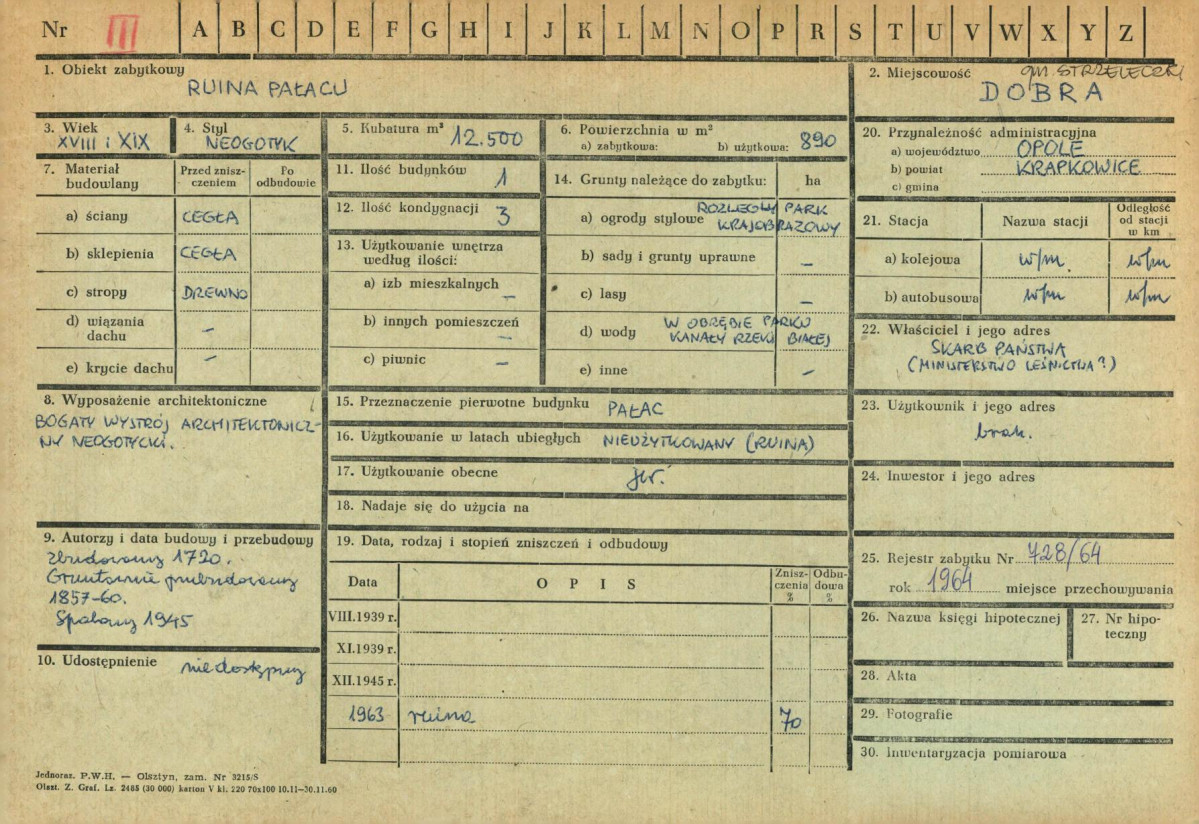 Nr III A B C D E F G H I J K L M N O P R S T U V W X Y Z
1. Obiekt zabytkowy
RUINA PAŁACU
2. Miejscowość gm. STRZELECZKI
DOBRA
3. Wiek
XVIII i XIX
4. Styl
NEOGOTYK
5. Kubatura m³ 12.500
6. Powierzchnia w m²
a) zabytkowa: b) użytkowa: 890
7. Materiał budowlany
Przed zniszczeniem
Po odbudowie
a) ściany CEGŁA
b) sklepienia CEGŁA
c) stropy DREWNO
d) wiązania dachu –
e) krycie dachu –
8. Wyposażenie architektoniczne
BOGATY WYSTRÓJ ARCHITEKTONICZ-
NY NEOGOTYCKI.
9. Autorzy i data budowy i przebudowy
zbudowany 1720.
Gruntownie przebudowany
1857-60.
Spalony 1945
10. Udostępnienie niedostępny
11. Ilość budynków 1
12. Ilość kondygnacji 3
13. Użytkowanie wnętrza
według ilości:
a) izb mieszkalnych –
b) innych pomieszczeń –
c) piwnic –
14. Grunty należące do zabytku: ha
a) ogrody stylowe ROZLEGŁY PARK
KRAJOBRAZOWY
b) sady i grunty uprawne –
c) lasy –
d) wody W OBRĘBIE PARKU
KANAŁY RZEKI BIAŁEJ
e) inne –
15. Przeznaczenie pierwotne budynku PAŁAC
16. Użytkowanie w latach ubiegłych NIEUŻYTKOWANY (RUINA)
17. Użytkowanie obecne jw.
18. Nadaje się do użycia na
19. Data, rodzaj i stopień zniszczeń i odbudowy
Data OPIS Zniszczenia % Odbudowa %
VIII.1939 r.
XI.1939 r.
XII.1945 r.
1963 ruina 70
20. Przynależność administracyjna
a) województwo OPOLE
b) powiat KRAPKOWICE
c) gmina
21. Stacja Nazwa stacji Odległość od stacji w km
a) kolejowa w/m w/m
b) autobusowa w/m w/m
22. Właściciel i jego adres
SKARB PAŃSTWA
(MINISTERSTWO LEŚNICTWA?)
23. Użytkownik i jego adres
brak.
24. Inwestor i jego adres
25. Rejestr zabytku Nr 728/64
rok 1964 miejsce przechowywania
26. Nazwa księgi hipotecznej
27. Nr hipoteczny
28. Akta
29. Fotografie
30. Inwentaryzacja pomiarowa
Jednoraz. P.W.H. — Olsztyn, zam. Nr 3215/S
Olszt. Z. Graf. Lz. 2485 (30 000) karton V kl. 220 70x100 10.11—30.11.60